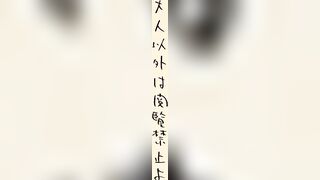 大人以外は閲覧禁止よ